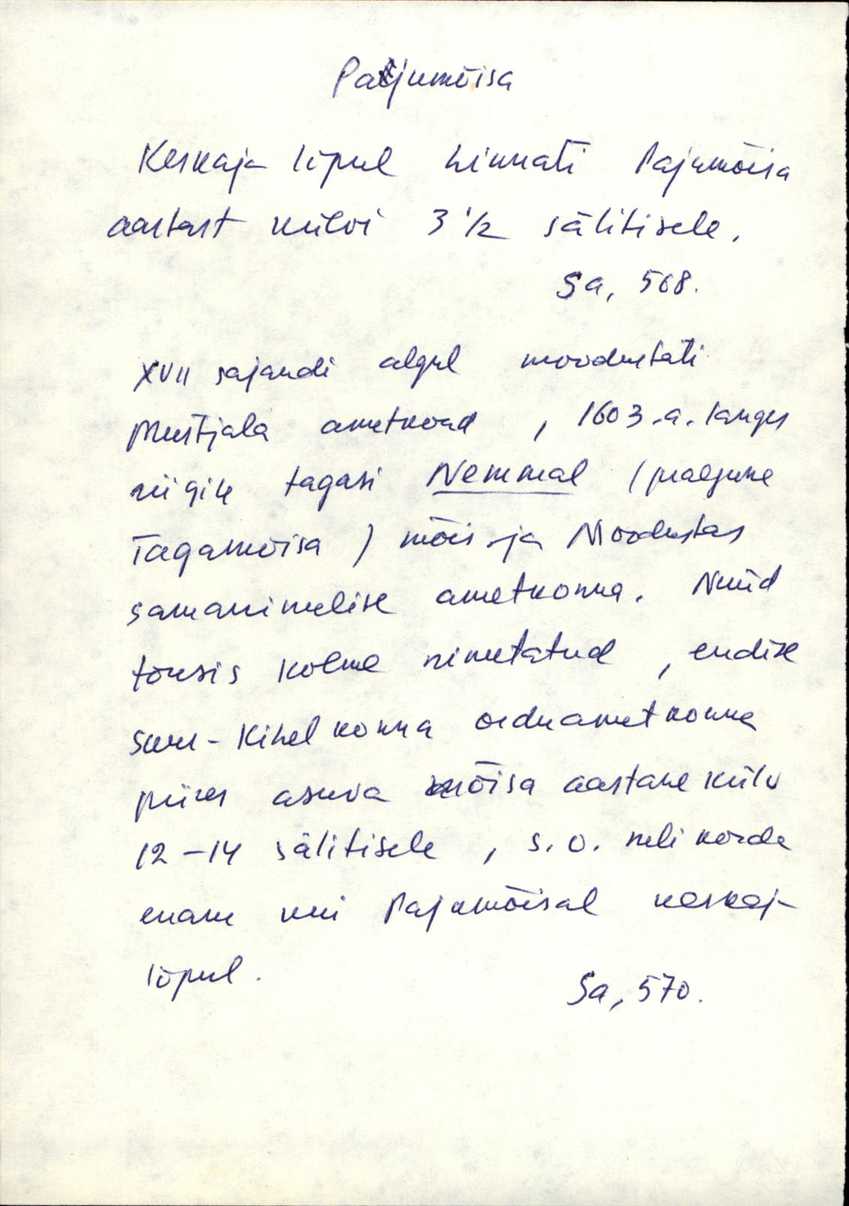 Pajumõisa
Keskaja lõpul hinnati Pajumõisa
aastast külvi 3 1/2 sälitisele.
Sa, 568.
XVII sajandi algul moodustati
Mustjala ametkond, 1603.a. langes
riigile tagasi Nemmal (praegune
Tagamõisa) mõis ja Moodustas
samanimelise ametkonna. Nüüd
tõusis kolme nimetatud, endise
Suur-Kihelkonna orduametkonna
piires asuva mõisa aastane külv
12-14 sälitisele, s.o. neli korda
enam kui Pajumõisal keskaj-
lõpul.
Sa, 570.